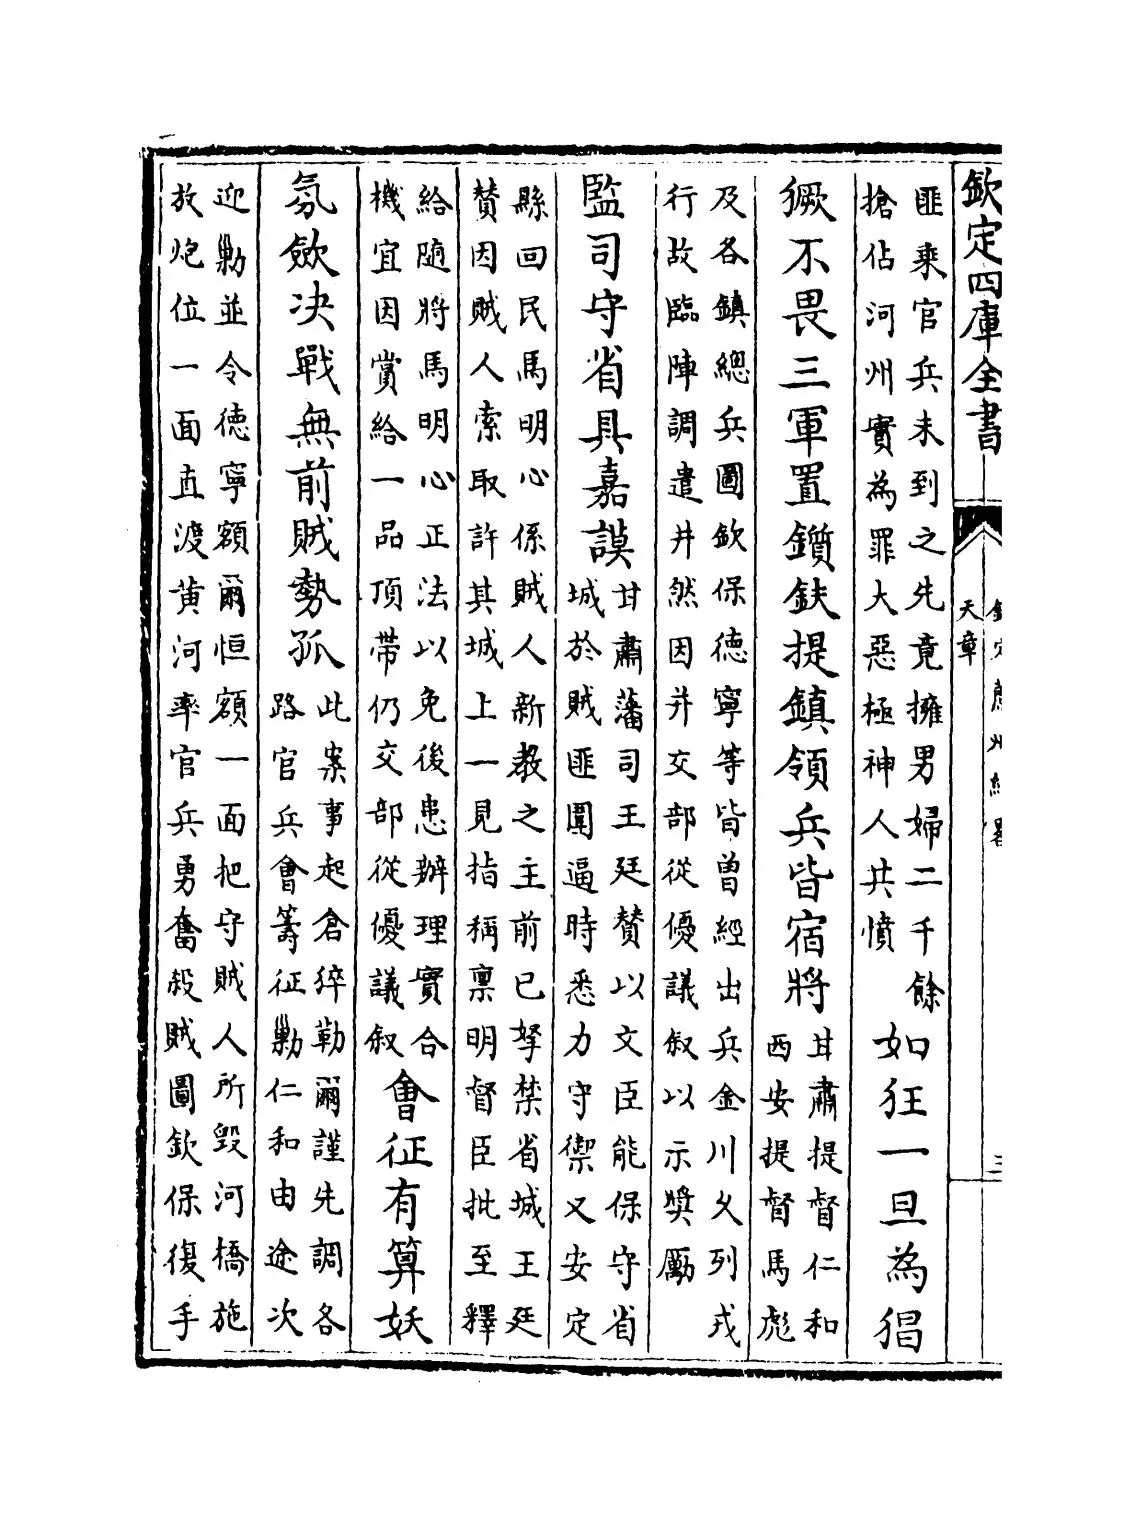 欽定四庫全書
天章
匪乘官兵未到之先竟擁男婦二千餘
搶佔河州實為罪大惡極神人共憤
如狂一旦為猖
獗不畏三軍置鑕鈇提鎮領兵皆宿將
甘肅提督仁和
西安提督馬彪
及各鎮總兵圖欽保德寧等皆曾經出兵金川久列戎
行故臨陣調遣井然因并交部從優議叙以示獎勵
監司守省具嘉謨
甘肅藩司王廷贊以文臣能保守省
城於賊匪圍逼時悉力守禦又安定
縣回民馬明心係賊人新教之主前已拏禁省城王廷
贊因賊人索取許其城上一見指稱稟明督臣批至釋
給隨將馬明心正法以免後患辦理實合
機宜因賞給一品頂帶仍交部從優議叙
會征有算妖
氛斂决戰無前賊勢孤
此案事起倉猝勒爾謹先調各
路官兵會籌征勦仁和由途次
迎勦並令德寧額爾恒額一面把守賊人所毀河橋施
放炮位一面直渡黄河率官兵勇奮殺賊圖欽保復手